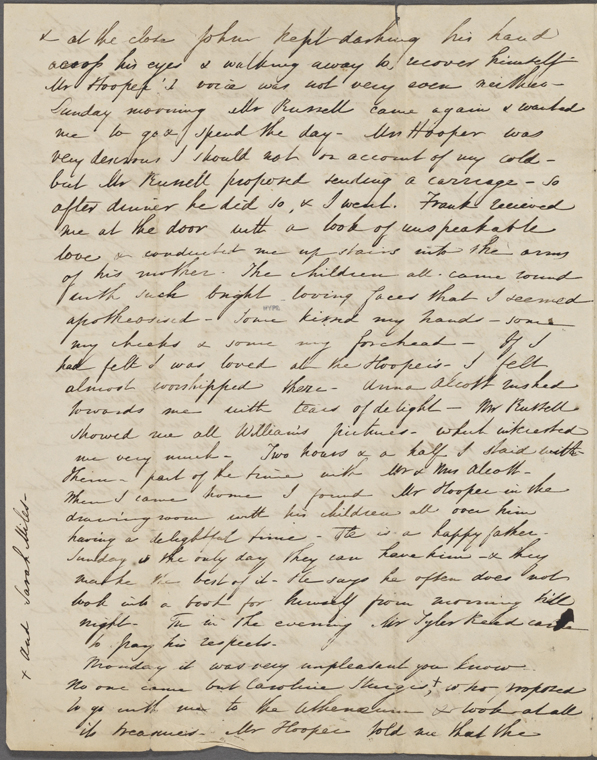 & at the close John kept dashing his hand
across his eyes & walking away to recover himself
Mr Hooper's voice was not very even neither -
Sunday morning Mr Russell came again & wanted
me to go & spend the day - Mrs Hooper was
very desirous I should not on account of my cold -
but Mr Russell proposed sending a carriage - so
after dinner he did so, & I went. Frank recieved
me at the door with a look of unspeakable
love & conducted me up stairs into the arms
of his mother. The children all came round
with such bright loving faces that I seemed
NYPL
apotheosised - Some kissed my hands - some
my cheeks & some my forehead - If I
had felt I was loved at the Hoopers - I felt
almost worshipped there - Anna Alcott rushed
towards me with tears of delight - Mr Russell
showed me all William's pictures - which interested
me very much - Two hours & a half I staid with
them - part of the time with Mr & Mrs Alcott -
When I came home I found Mr Hooper in the
drawing room with his children all over him
having a delightful time - He is a happy father -
Sunday is the only day they can have him - & they
make the best of it - He says he often does not
look into a book for himself from morning till
night - In the evening Mr Tyler came
to pay his respects -
Monday it was very unpleasant you know
No one came but Caroline Sturgis,+ who proposed
to go with me to the Athenaeum & look at all
its treasures - Mr Hooper told me that the
+ and Sarah Miles -